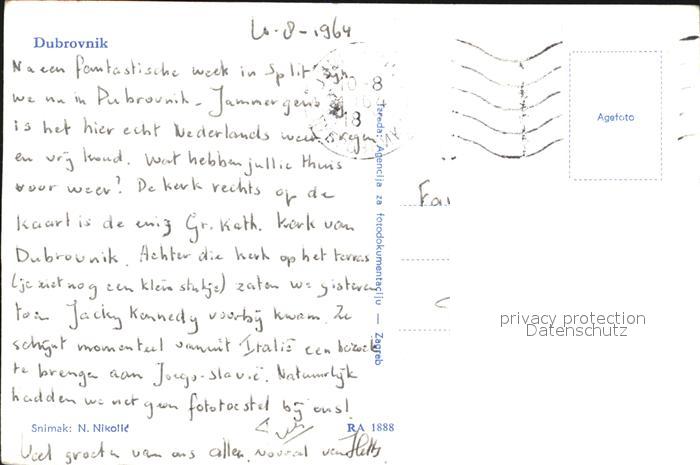 10-8-1964
Dubrovnik
Na een fantastische week in Split zijn
we nu in Dubrovnik. Jammer genoeg
is het hier echt Nederlands weer: regen
en vrij koud. Wat hebben jullie thuis
voor weer? De kerk rechts op de
kaart is de enig Gr. Kath. kerk van
Dubrovnik. Achter die kerk op het terras
(je ziet nog een klein stukje) zaten we gisteren
toen Jacky Kennedy voorbij kwam. Ze
schijnt momenteel vanuit Italië een bezoek
te brengen aan Joego-slavië. Natuurlijk
hadden we net geen fototoestel bij ons!
Snimak: N. Nikolić
RA 1888
Veel groeten van ons allen, vooral van
Izrada: Agencija za fotodokumentaciju — Zagreb
18
Fa
Agefoto
privacy protection
Datenschutz